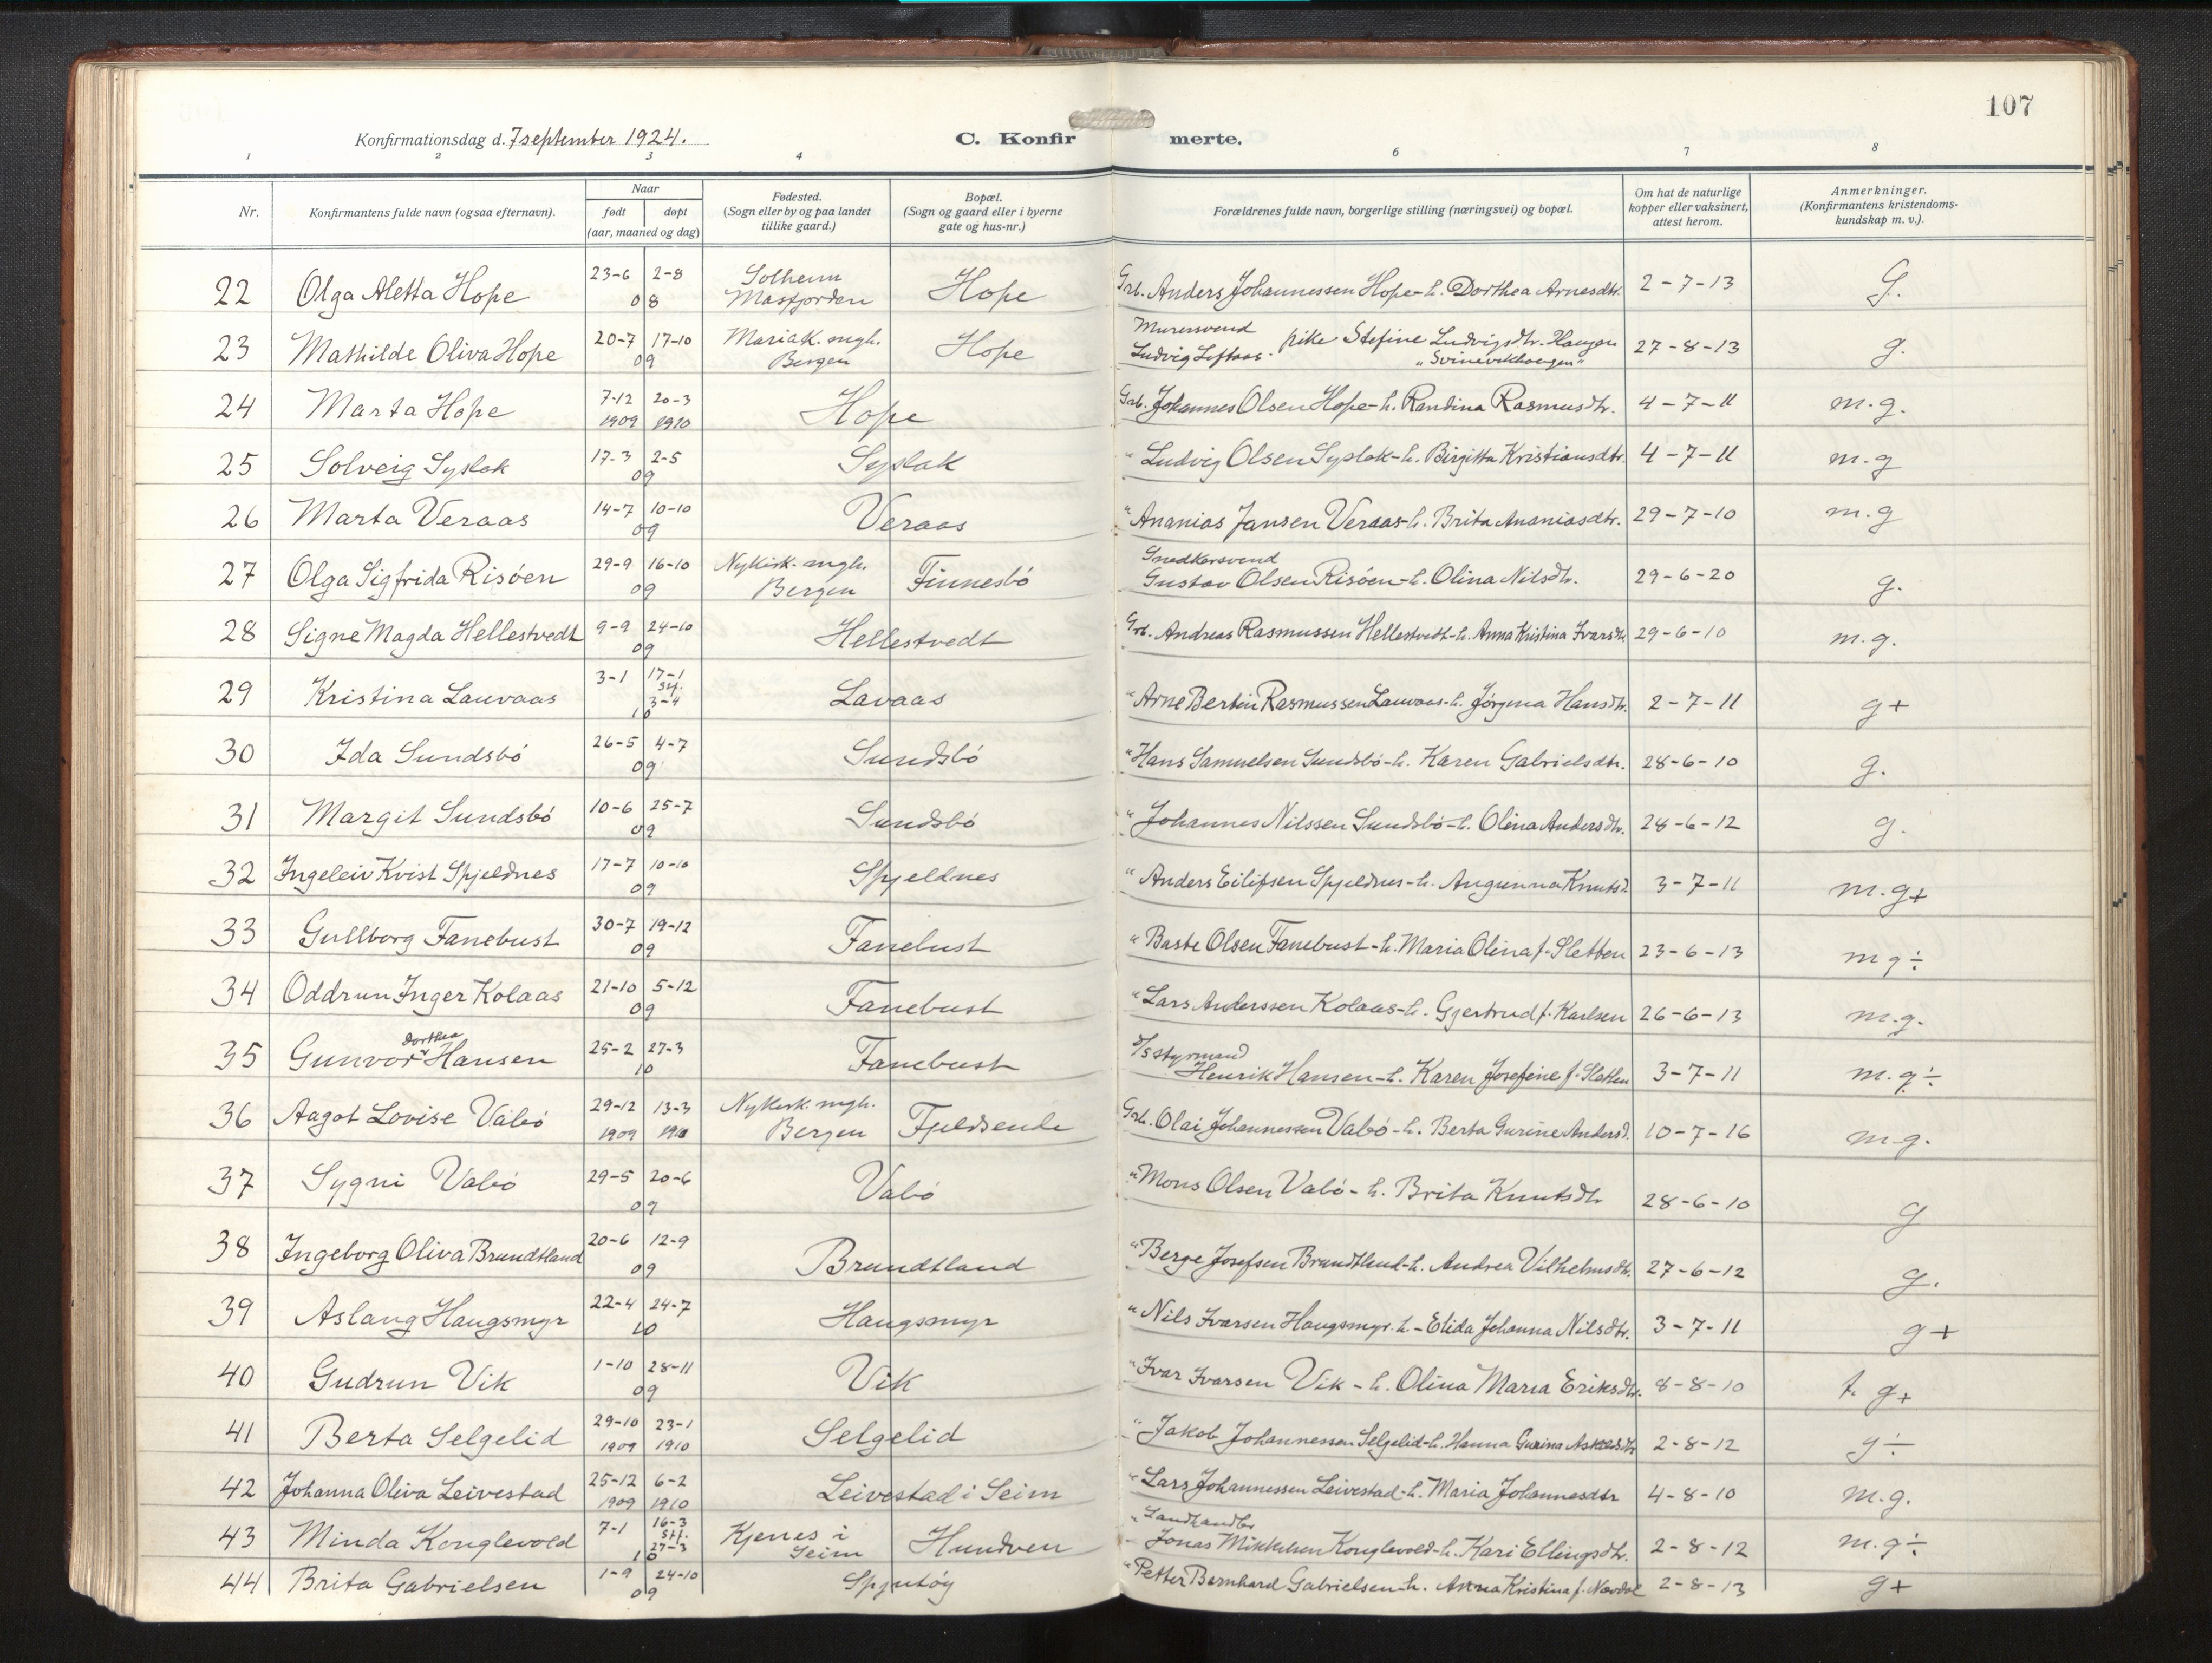 107
Konfirmationsdag d. 7 september 1924.
C. Konfirmerte.
1 2 3 4 6 7 8
Nr. Konfirmantens fulde navn (ogsaa efternavn). Naar født døpt (aar, maaned og dag) Fødested. (Sogn eller by og paa landet tillike gaard.) Bopæl. (Sogn og gaard eller i byerne gate og hus-nr.) Forældrenes fulde navn, borgerlige stilling (næringsvei) og bopæl. Om hat de naturlige kopper eller vaksinert, attest herom. Anmerkninger. (Konfirmantens kristendomskundskap m. v.).
22 Olga Aletta Hope 23-6 2-8 08 Solheim Masfjorden Hope Grb. Anders Johannessen Hope - h. Dorthea Arnesdtr. 2-7-13 G.
23 Mathilde Oliva Hope 20-7 17-10 09 Mariak. mgh. Bergen Hope Murersvend Ludvig Loftaas. pike Stefine Ludvigsdtr. Haugen "Svinevikhaugen" 27-8-13 g.
24 Marta Hope 7-12 1909 20-3 1910 Hope Grb. Johannes Olsen Hope - h. Randina Rasmusdtr. 4-7-11 m.g.
25 Solveig Syslak 17-3 2-5 09 Syslak " Ludvig Olsen Syslak - h. Birgitta Kristiansdtr. 4-7-11 m.g
26 Marta Veraas 14-7 10-10 09 Veraas " Ananias Jansen Veraas - h. Brita Ananiasdtr. 29-7-10 m.g
27 Olga Sigfrida Risöen 29-9 16-10 09 Nykirk. mgh. Bergen Finnesbö Snedkersvend Gustav Olsen Risöen - h. Olina Nilsdtr. 29-6-20 g.
28 Signe Magda Hellestvedt 9-9 24-10 09 Hellestvedt Grb. Andreas Rasmussen Hellestvedt - h. Anna Kristina Ivarsdtr. 29-6-10 m.g.
29 Kristina Lauvaas 3-1 17-1 Stf. 3-4 10 Lavaas " Arne Bertin Rasmussen Lauvaas - h. Jörgina Hansdtr. 2-7-11 g+
30 Ida Sundsbö 26-5 4-7 09 Sundsbö " Hans Samuelsen Sundsbö - h. Karen Gabrielsdtr. 28-6-10 g.
31 Margit Sundsbö 10-6 25-7 09 Sundsbö " Johannes Nilssen Sundsbö - h. Olina Andersdtr. 28-6-12 g.
32 Ingeleiv Kvist Spjeldnes 17-7 10-10 09 Spjeldnes " Anders Eilifsen Spjeldnes - h. Angunna Knutsd. 3-7-11 m.g+
33 Gullborg Fanebust 30-7 19-12 09 Fanebust " Baste Olsen Fanebust - h. Maria Olina f. Sletten 23-6-13 m g÷
34 Oddrun Inger Kolaas 21-10 5-12 09 Fanebust " Lars Anderssen Kolaas - h. Gjertrud f. Karlsen 26-6-13 m.g.
35 Gunvor Dorthea Hansen 25-2 27-3 10 Fanebust D/S styrmand Henrik Hansen - h. Karen Josefine f. Sletten 3-7-11 m.g÷
36 Aagot Lovise Vabö 29-12 1909 13-3 1910 Nykirk. mgh. Bergen Fjeldsende Grb. Olai Johannessen Vabö - h. Berta Gurine Andersd. 10-7-16 m.g.
37 Sygni Vabö 29-5 20-6 09 Vabö " Mons Olsen Vabö - h. Brita Knutsdtr 28-6-10 g
38 Ingeborg Oliva Brundtland 20-6 12-9 09 Brundtland " Berge Josefsen Brundtland - h. Andrea Vilhelmsdtr. 27-6-12 g.
39 Aslaug Haugsmyr 22-4 24-7 10 Haugsmyr " Nils Ivarsen Haugsmyr. h. - Elida Johanna Nilsdtr. 3-7-11 g+
40 Gudrun Vik 1-10 28-11 09 Vik " Ivar Ivarsen Vik - h. Olina Maria Eriksdtr. 8-8-10 t. g+
41 Berta Selgelid 29-10 1909 23-1 1910 Selgelid " Jakob Johannessen Selgelid - h. Hanna Gurina Askelsdtr 2-8-12 g÷
42 Johanna Oliva Leivestad 25-12 1909 6-2 1910 Leivestad i Seim " Lars Johannessen Leivestad - h. Maria Johannesdtr 4-8-10 m.g.
43 Minda Konglevold 7-1 16-3 Stf. 27-3 10 Kjenes i Seim Hundven " Landhandler Jonas Mikkelsen Konglevold - h. Kari Ellingsdtr. 2-8-12 m.g÷
44 Brita Gabrielsen 1-9 24-10 09 Spjutöy " Petter Bernhard Gabrielsen - h. Anna Kristina f. Nævdal 2-8-13 g+